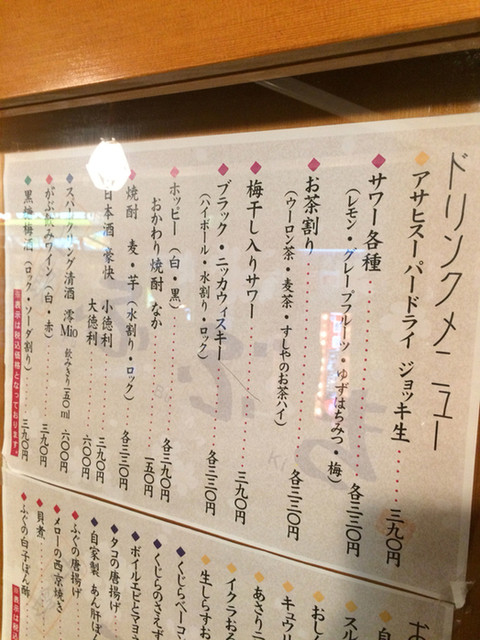 ドリンクメニュー
アサヒスーパードライ ジョッキ生 三九〇円
サワー各種 各三三〇円
(レモン・グレープフルーツ・ゆずはちみつ・梅)
お茶割り 各三三〇円
(ウーロン茶・麦茶・すしやのお茶ハイ)
梅干し入りサワー 三九〇円
ブラック・ニッカウィスキー 各三三〇円
(ハイボール・水割り・ロック)
ホッピー (白・黒) 各三九〇円
おかわり焼酎 なか 一五〇円
焼酎 麦・芋 (水割り・ロック) 各三三〇円
日本酒 豪快 小徳利 三九〇円
大徳利 六〇〇円
スパークリング清酒 澪 Mio 飲みきり一五〇ml 六〇〇円
がぶ飲みワイン (白・赤) 三九〇円
黒糖梅酒 (ロック・ソーダ割り) 三九〇円
※表示は税込価格となっております。
お
自
スル
おし
キュウリ
あさり
イクラおろ
生しらすお
くじらベーコ
くじらのさえず
ボイルエビとマヨ
タコの唐揚げ
自家製 あん肝ぽ
ふぐの唐揚げ
メローの西京焼き
貝煮
ふぐの白子ぽん酢
※表示は税込